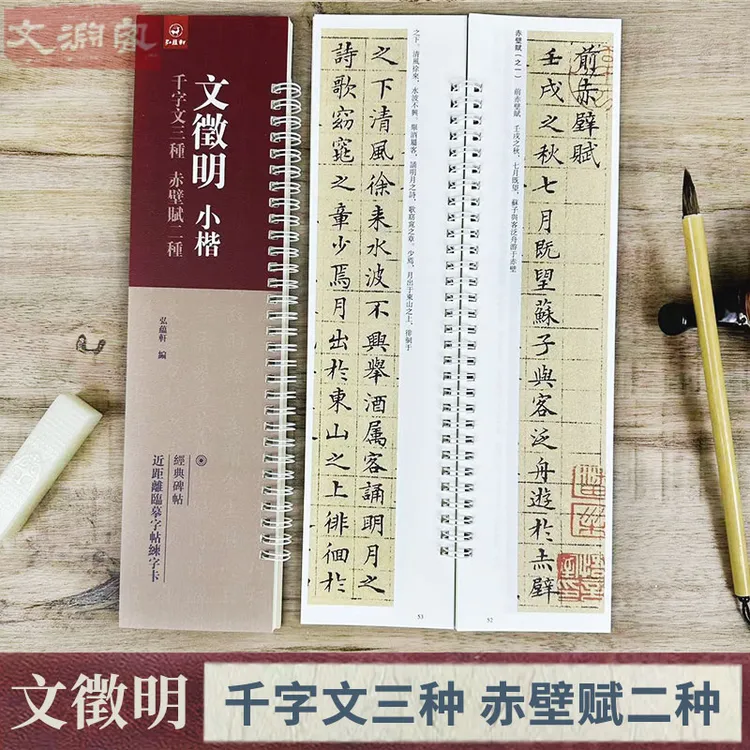 弘蘊軒
文徵明 小楷
千字文三種 赤壁賦二種
弘蘊軒 編
經典碑帖
近距離臨摹字帖練字卡
前赤壁賦
壬戌之秋七月既望蘇子與客泛舟遊於赤壁
赤壁賦（之一） 前赤壁賦 壬戌之秋，七月既望，蘇子與客泛舟游于赤壁
52
之下，清風徐來，水波不興。舉酒屬客，誦明月之詩，歌窈窕之章。少焉，月出于東山之上，徘徊于
之下清風徐来水波不興舉酒属客誦明月之
詩歌窈窕之章少焉月出於東山之上徘徊於
53
文徵明
千字文三种 赤壁赋二种